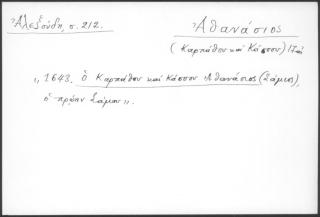 Ἀλεξούδη, σ. 212.
Ἀθανάσιος
(Καρπάθου καὶ Κάσσου)
„ 1643. ὁ Καρπάθου καὶ Κάσσου Ἀθανάσιος (Σάμιος),
ὁ πρώην Σάμου „.